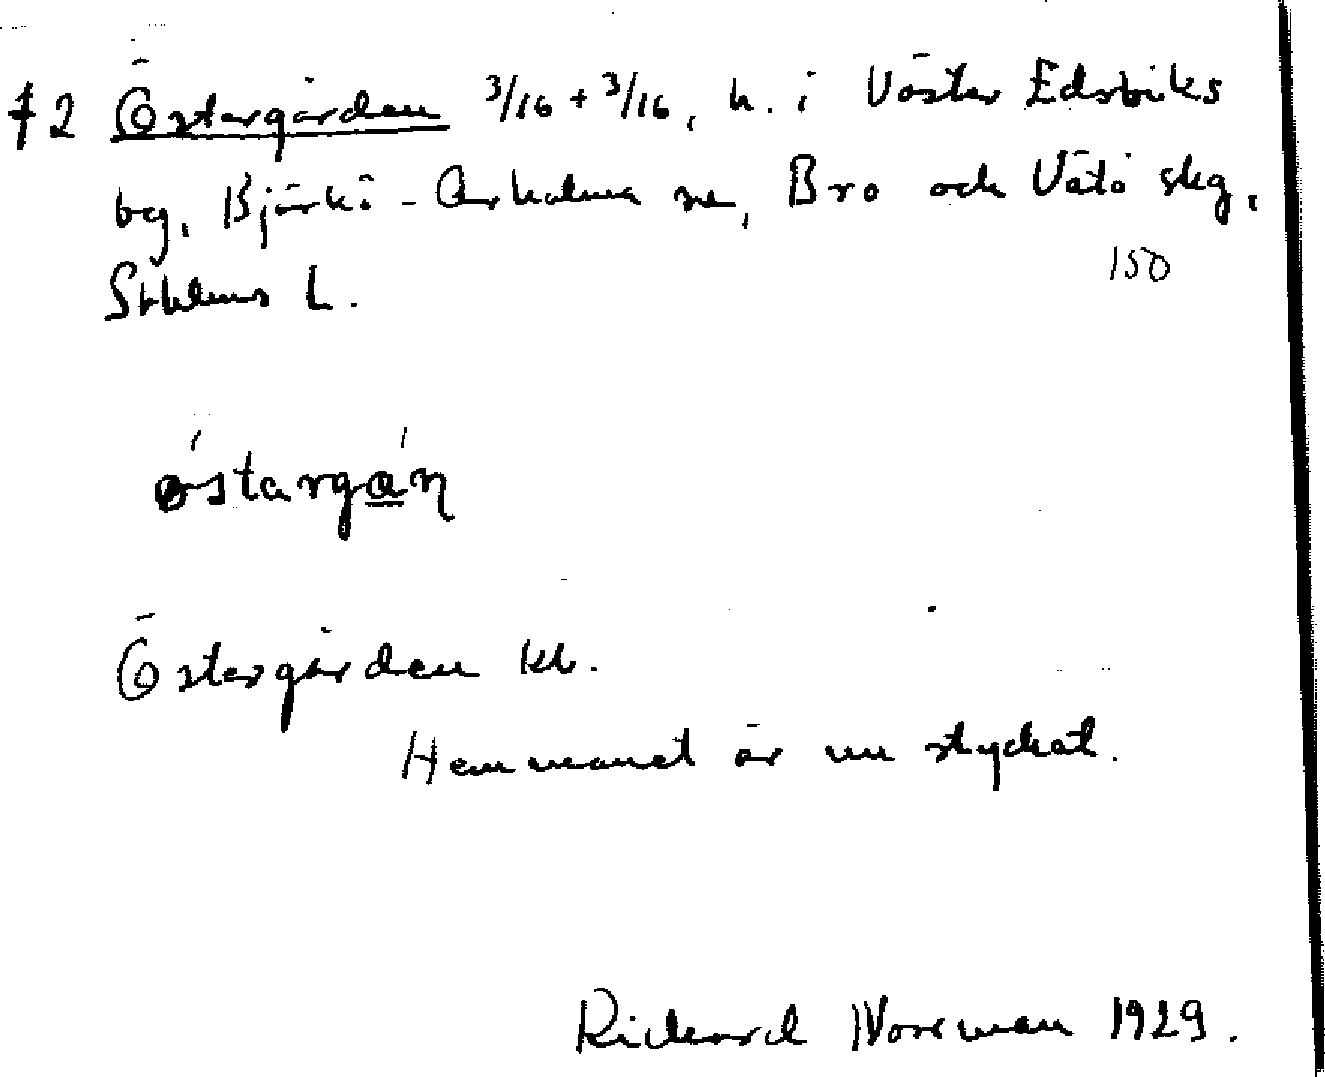 ‡2 Östergården 3/16 + 3/16, h. i Väster Edsviks
by, Björkö-Arholma sn, Bro och Vätö skg,
Stklms L.
150
östargán
Östergården kb.
Hemmanet är nu styckat.
Rickard Norrman 1929.